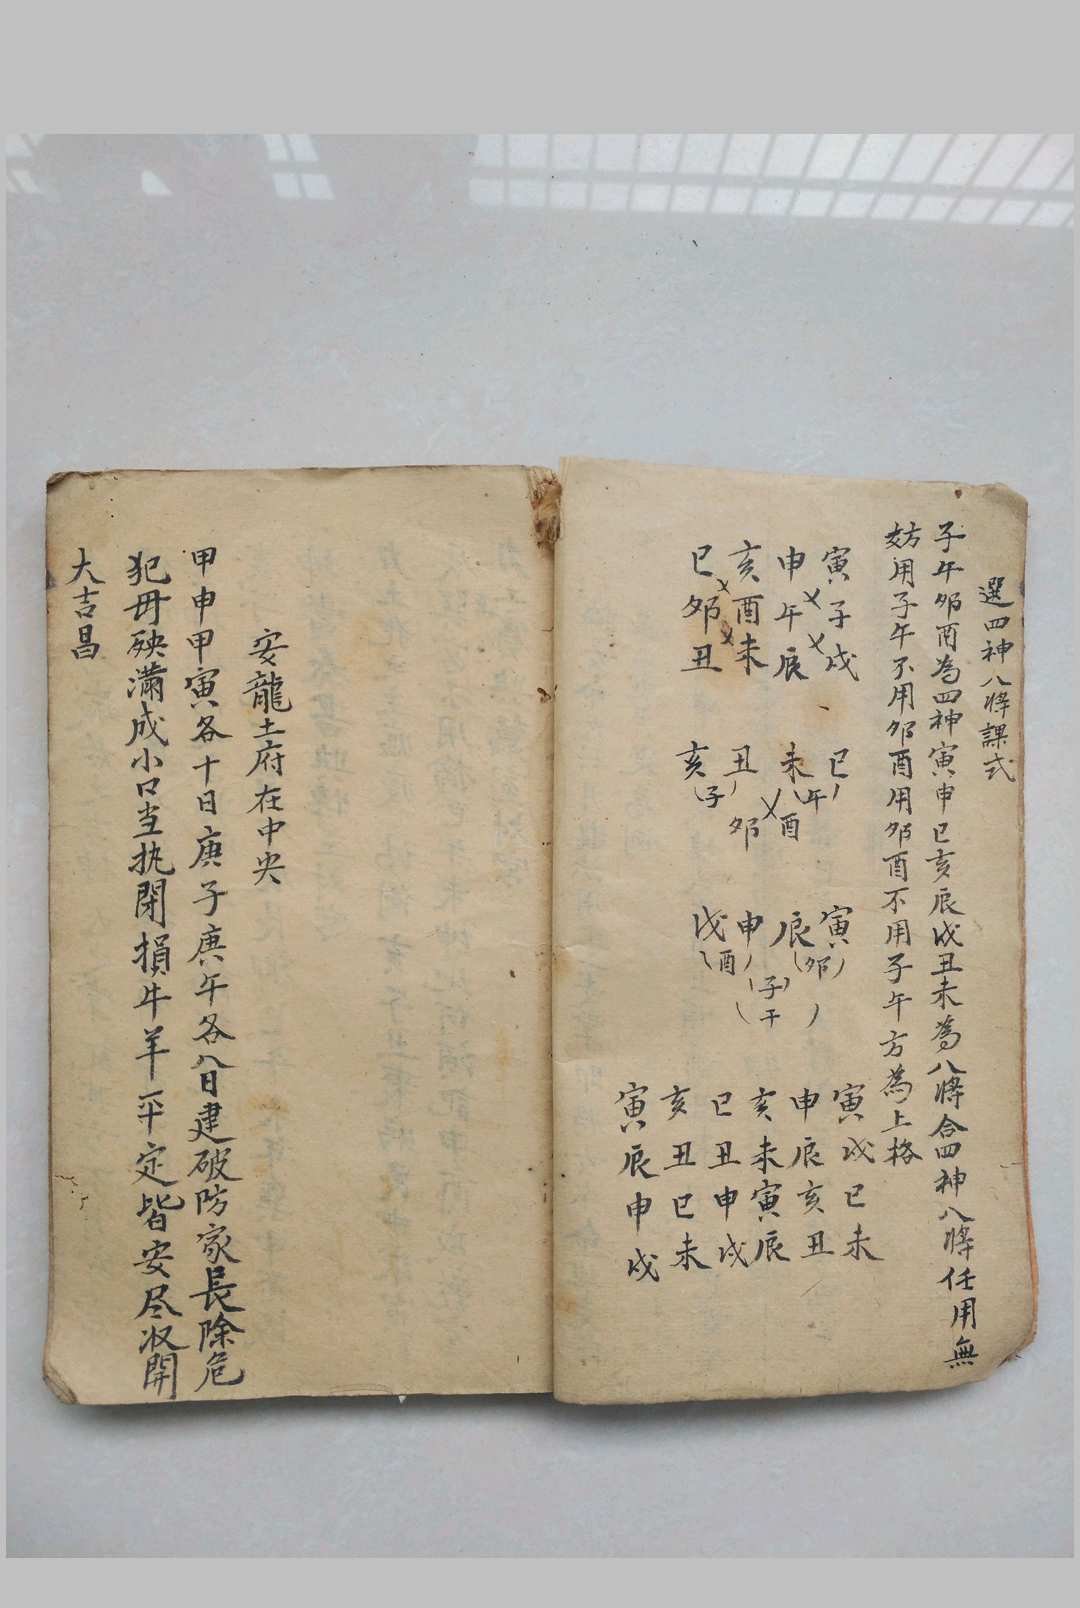 選四神八將課式
子午夘酉為四神寅申巳亥辰戌丑未為八將合四神八將任用無
妨用子午不用夘酉用夘酉不用子午方為上格
寅子戌
申午辰
亥酉未
巳夘丑
巳(午)
未酉
丑夘
亥(子)
寅(夘)
辰(子午)
申(酉)
戌
寅戌巳未
申辰亥丑
亥未寅辰
巳丑申戌
亥丑巳未
寅辰申戌
安龍土府在中央
甲申甲寅各十日庚子庚午各八日建破防家長除危
犯毋殃滿成小口当执閉損牛羊平定皆安尽收開
大吉昌